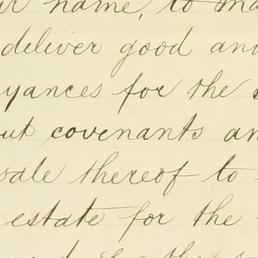 name, to
deliver good and
yances for the
out covenants an
sale thereof to
estate for the